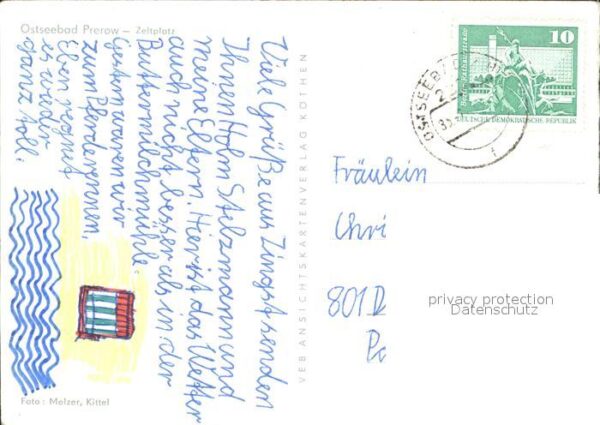 Ostseebad Prerow – Zeltplatz
Viele Grüße aus Zingst senden
Ihnen Holm Stelzmann und
meine Eltern. Hier ist das Wetter
auch nicht besser als in der
Buttermilchmühle.
Gestern waren wir
zum Pferderennen.
Eben regnet
es wieder
ganz toll.
Foto: Melzer, Kittel
VEB ANSICHTSKARTENVERLAG KÖTHEN
10
Berlin, Rathausstraße
DEUTSCHE DEMOKRATISCHE REPUBLIK
OSTSEEB
Fräulein
Chri
801 D
privacy protection
Datenschutz